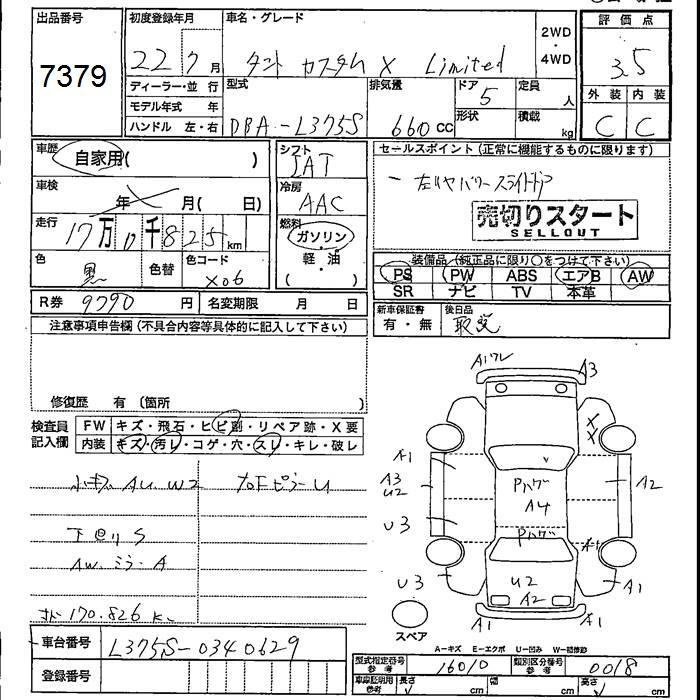 出品番号
7379
初度登録年月
22 7月
車名・グレード
タント カスタム X Limited
2WD
・
4WD
評価点
3.5
ディーラー・並 行
モデル年式 年
ハンドル 左・右
型式
DBA-L375S
排気量
660cc
ドア
5
形状
定員
人
積載
kg
外装 内装
C C
車歴
自家用( )
車検
年 月( 日)
走行
17万0千825km
色
黒
色替
色コード
X06
シフト
IAT
冷房
AAC
燃料
ガソリン
・
軽・油
( )
セールスポイント(正常に機能するものに限ります)
売切りスタート
SELLOUT
装備品(純正品に限り○をつけて下さい)
PS PW ABS エアB AW
SR ナビ TV 本革
R券 9790 円
名変期限 月 日
新車保証書
有・無
後日品
取説
注意事項申告欄(不具合内容等具体的に記入して下さい)
修復歴 有 (箇所
検査員
記入欄
FW キズ・飛石・ヒビ割・リペア跡・X要
内装 キズ・汚レ・コゲ・穴・スレ・キレ・破レ
下回りS
AW.ミラーA
170.826 K
A1 A3
A1
A3
U2
U3
U3
A1
A4
U2
A2
A2
A1
A1
A1
スペア
A-キズ E-エクボ U-凹み W-補修跡
車台番号 L375S-0340629
登録番号
型式指定番号
参考
16010
類別区分番号
参考
0018
車庫証明用
参考
長さ
cm
幅
cm
高さ
cm